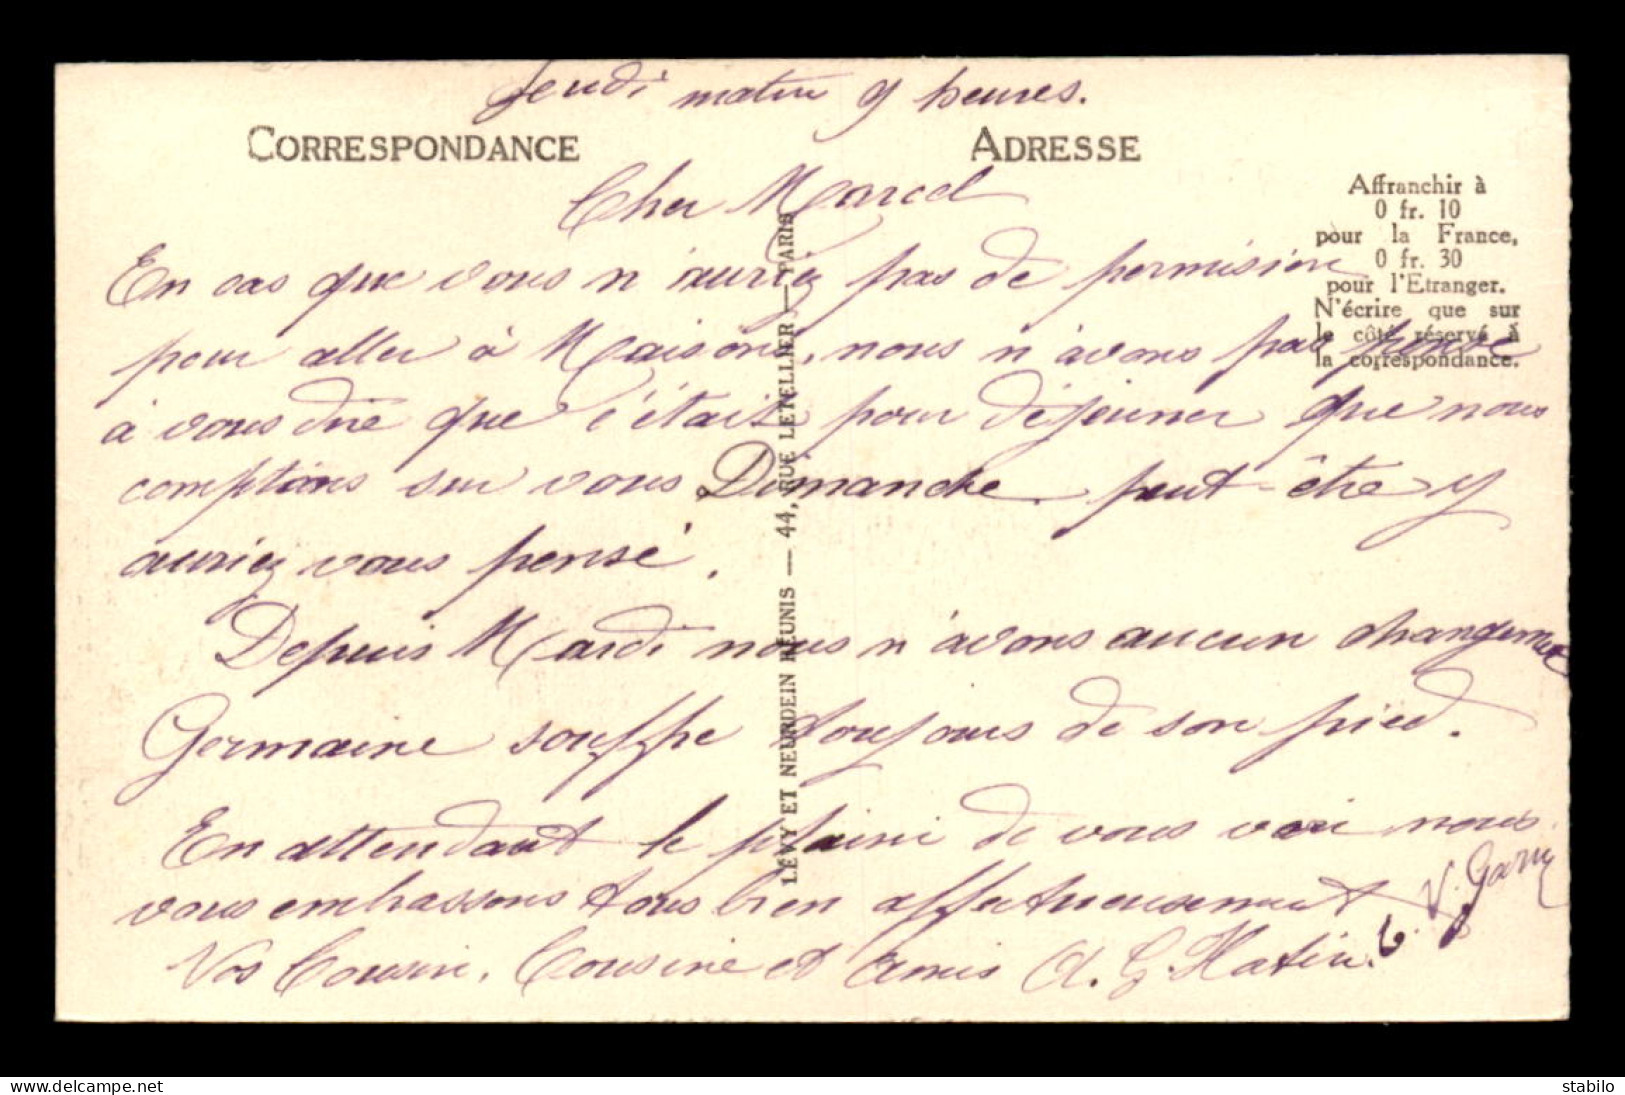 Jeudi matin 9 heures.
CORRESPONDANCE
ADRESSE
Affranchir à
0 fr. 10
pour la France,
0 fr. 30
pour l'Etranger.
N'écrire que sur
le côté réservé à
la correspondance.
Cher Marcel
En cas que vous n'auriez pas de permision
pour aller à Maisons, nous n'avons pas pensé
à vous dire que c'était pour déjeuner que nous
comptions sur vous Dimanche. peut-être y
auriez vous pensé.
Depuis Mardi nous n'avons aucun changement
Germaine souffre toujours de son pied.
En attendant le plaisir de vous voir nous
vous embrassons tous bien affectueusement
Vos Cousin, Cousine et Amis A. G. Hatin.
V.
LEVY ET NEURDEIN RÉUNIS — 44, RUE LETELLIER — PARIS
stabilo
www.delcampe.net